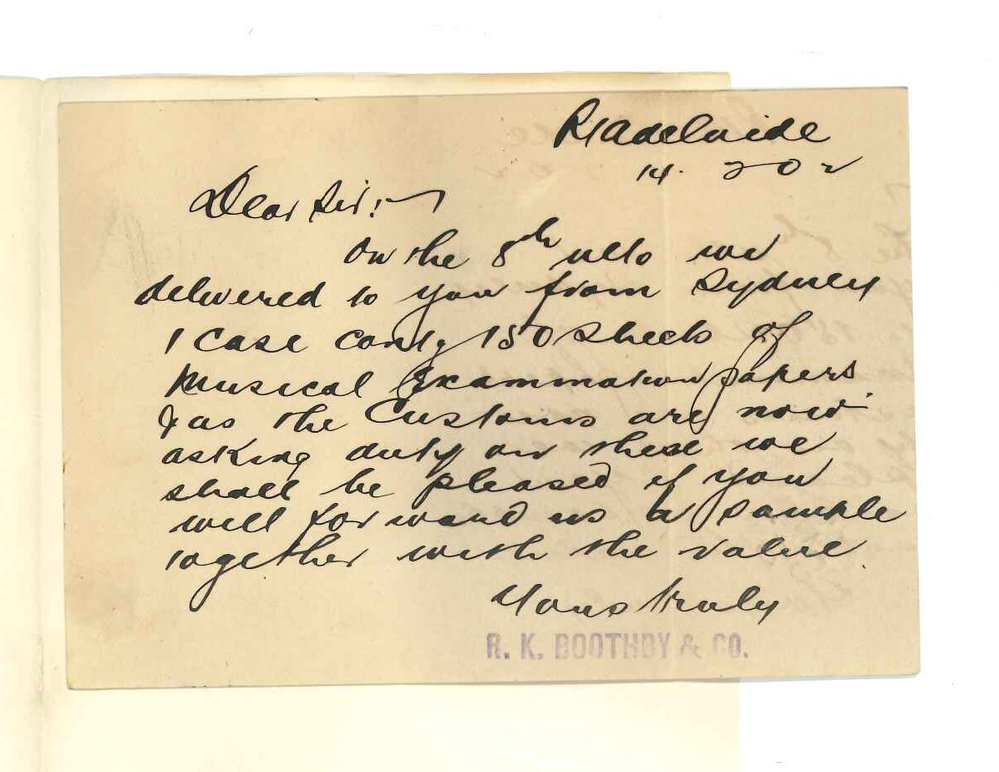 Pt Adelaide
14. 2 02
Dear Sir:-
On the 8th ulto we
delivered to you from Sydney
1 Case contg 150 Sheets of
Musical Examination papers
& as the Customs are now
asking duty on these we
shall be pleased if you
will forward us a Sample
together with the value.
Yours truly
R. K. BOOTHBY & CO.